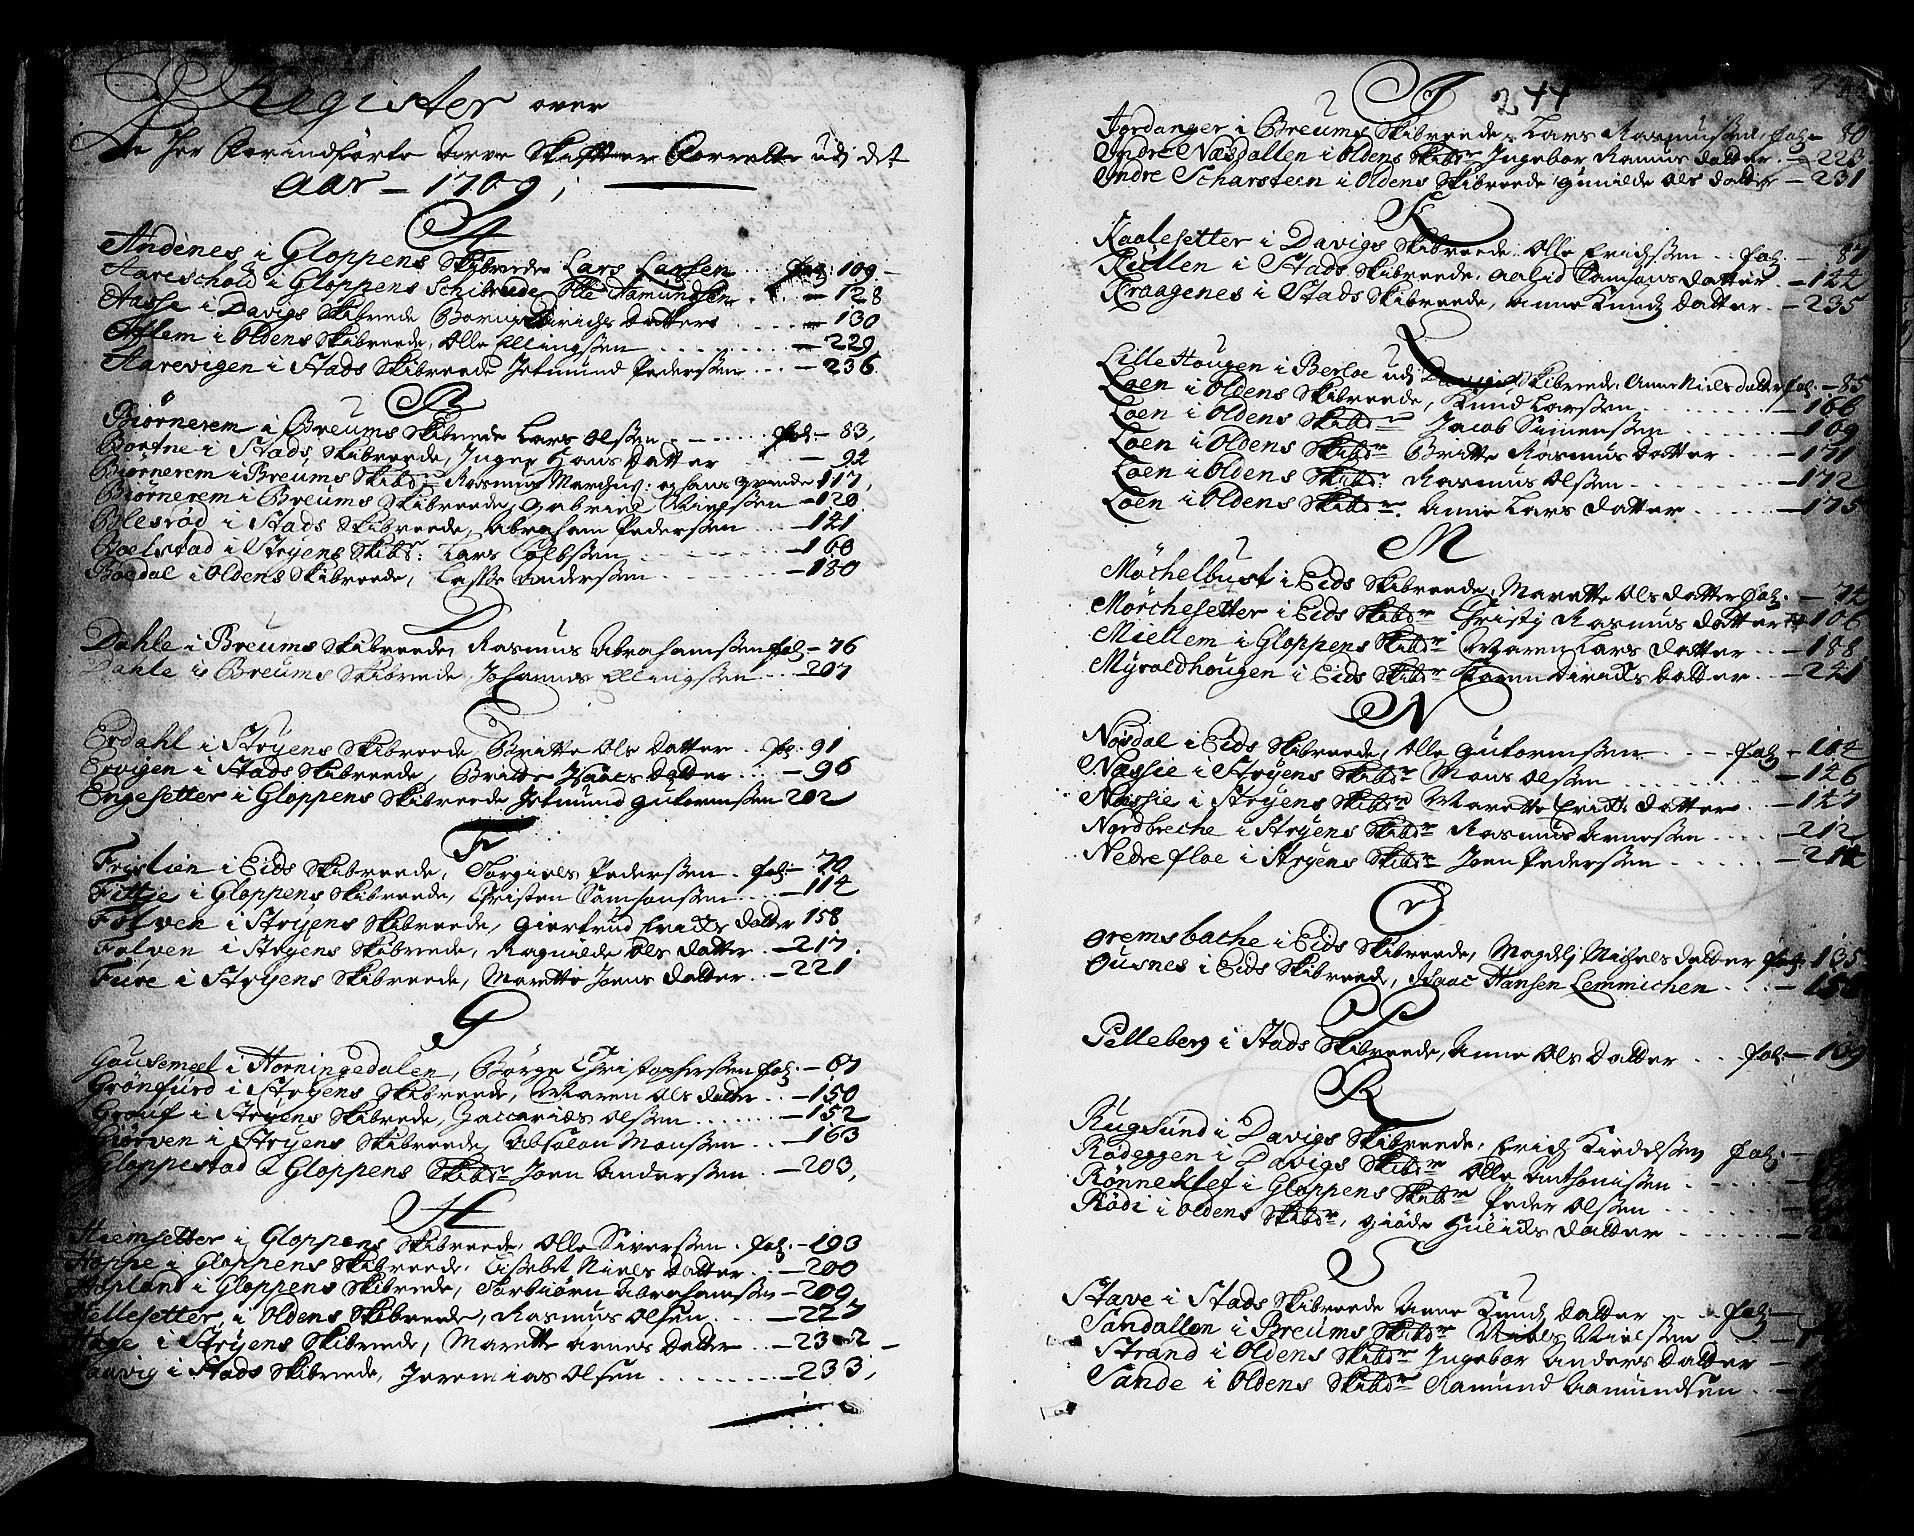 Register over
De her forindførte Arve Skifter forrettet udi det
Aar - 1709;
A
Andenes i Gloppens Skibrede Lars Larsen fol: 109
Aareschold i Gloppens Schibrede Olle Aamundsen - 128
Aasse i Davigs Skibrede Dirichs Datter - 130
Aflem i Oldens Skibreede, Olle Ellingssen - 229
Aarevigen i Stads Skibreede Jetmund Pederssen - 236
B
Biørnerem i Breums Skibrede Lars Olssen fol - 83,
Bortne i Stads Skibreede, Inger Hans Datter - 92
Biørnerem i Breums Skibdr Rasmus Marchus: og hans qvinde 117,
Biørnerem i Breums Skibreede, Gabriel Nielssen - 120
Blesrød i Stads Skibreede, Abraham Pederssen - 121
Boelstad i Stryens Skibdr: Lars Colbssen - 160
Boedal i Oldens Skibreede, Lasse Anderssen - 180
D
Dahle i Breums Skibreede, Rasmus Abrahamssen fol - 76
Dahle i Breums Skibreede, Johannes Ellingssen - 207
E
Erdahl i Stryens Skibreede, Britte Ols Datter fol: 91
Ervigen i Stads Skibreede, Britte Datter - 96
Engesetter i Gloppens Skibreede Jetmund Gutormssen 202
F
Fryslien i Eids Skibreede, Torgiels Pederssen fol - 70
Fittje i Gloppens Skibreede, Christen Samsonssen - 114
Folven i Stryens Skibreede, Giertrud Erichs Datter 158
Folven i Stryens Skibrede, Ragnilde Ols Datter - 217
Fure i Stryens Skibreede, Marette Joens Datter - 221
G
Gausemeel i Horningedalen, Børge Christophersen fol: - 67
Grønfurd i Stryens Skibreede, Maren Ols Datter - 150
Grouf i Stryens Skibrede, Zaccarias Olssen - 152
Giørven i Stryens Skibreede, Absolon Monssen - 163
Gloppestad i Gloppens Skibdr Joen Anderssen - 203,
H
Hiemsetter i Gloppens Skibreede, Olle Siverssen fol: - 193
Hoppe i Gloppens Skibreede, Lisebet Niels Datter - 200
Hopland i Gloppens Skibrede, Torbiørn Abrahamssen - 209
Hellesetter, i Oldens Skibreede, Rasmus Olsen - 227
Hage i Stryens Skibreede, Marette Arnes Datter - 232
i Stads Skibrede, Jeremias Olsen - 233,
J 244
Jordanger i Breums Skibreede, Lars Rasmussen, fol - 80
Indre Næsdallen i Oldens Skibdr Ingebor Rasmus Datter - 223
Indre Scharsteen i Oldens Skibreede Gunilde Ols Datter - 231
K
Kaalesetter i Davigs Skibreede Olle Erichssen fol: - 87
Kullen i Stads Skibreede, Aalid Samsons Datter - 144
Kraagenes i Stads Skibreede, Anne Knuds Datter - 235
L
Lille Hougen i Berloe udi Davigs Skibreede, Anne Niels Datter fol: - 85
Loen i Oldens Skibreede, Knud Larssen - 166
Loen i Oldens Skibdr Jacob Simenssen - 169
Loen i Oldens Skibdr Britte Rasmus Datter - 171
Loen i Oldens Skibdr: Rasmus Olsen - 172
Loen i Oldens Skibdr: Anne Lars Datter - 175
M
Møchelbust i Eids Skibreede, Marette Ols Datter fol: - 74
Mørchesetter i Eids Skibdr Christj Rasmus Datter - 106
Miellem i Gloppens Skibdr Maren Lars Datter - 188
Myroldhougen i Eids Skibdr Karen Dirichs Datter - 241
N
Nosdal i Eids Skibreede, Olle Gutormssen fol - 104
Næssie i Stryens Skibdr Mons Olssen - 146
Næssie i Stryens Skibdr Marette Erichs Datter - 147
Nordbreche i Stryens Skibdr Rasmus Arnessen - 212
Nedre Floe i Stryens Skibdr Joen Pederssen - 214
O
Oremsbache i Eids Skibreede, Magdlj Michels Datter fol: 135
Ousnes i Eids Skibreede, Isaac Hansen Lemmichen -
P
Pelleberg i Stads Skibreede, Anne Ols Datter fol: - 109
R
Rugsund i Davigs Skibreede, Erich fol: -
Rødeggen i Davigs Skibdr Olle Anthonissen
Rønneklef i Gloppens Skibdr Peder Olssen
Rødi i Oldens Skibdr, Giøde Datter
S
Stave i Stads Skibreede Anne Knuds Datter fol: -
Sandallen i Breums Skibdr Nielssen
Strand i Oldens Skibdr Ingebor Anders Datter -
Sande i Oldens Skibdr Aamundsen -